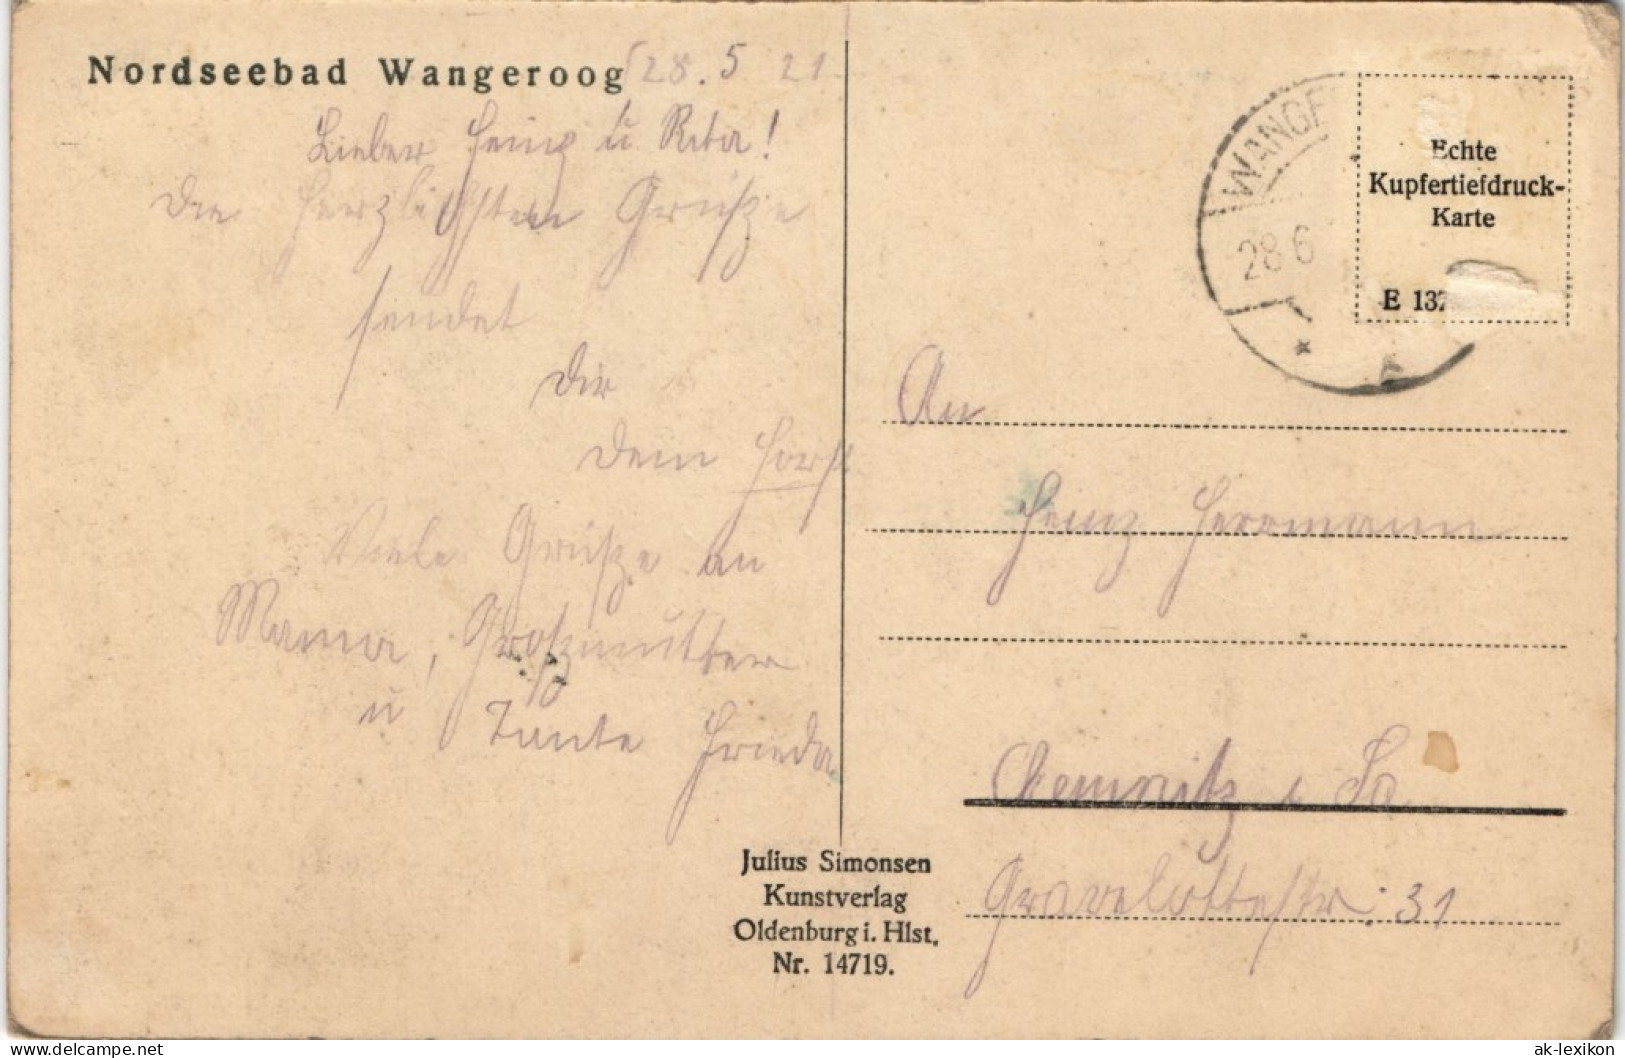 Nordseebad Wangeroog
28. 5 21.
Lieber Heinz u. Rita!
Die herzlichsten Grüße
sendet
Dir
Dein Horst
Viele Grüße an
Mama, Großmutter
u Tante Frieda.
WANGE
28 6
Echte
Kupfertiefdruck-
Karte
E 137
An
Heinz Herrmann
Chemnitz i Sa
Gravelottestr. 31
Julius Simonsen
Kunstverlag
Oldenburg i. Hlst.
Nr. 14719.
delcampe.net
ak-lexikon